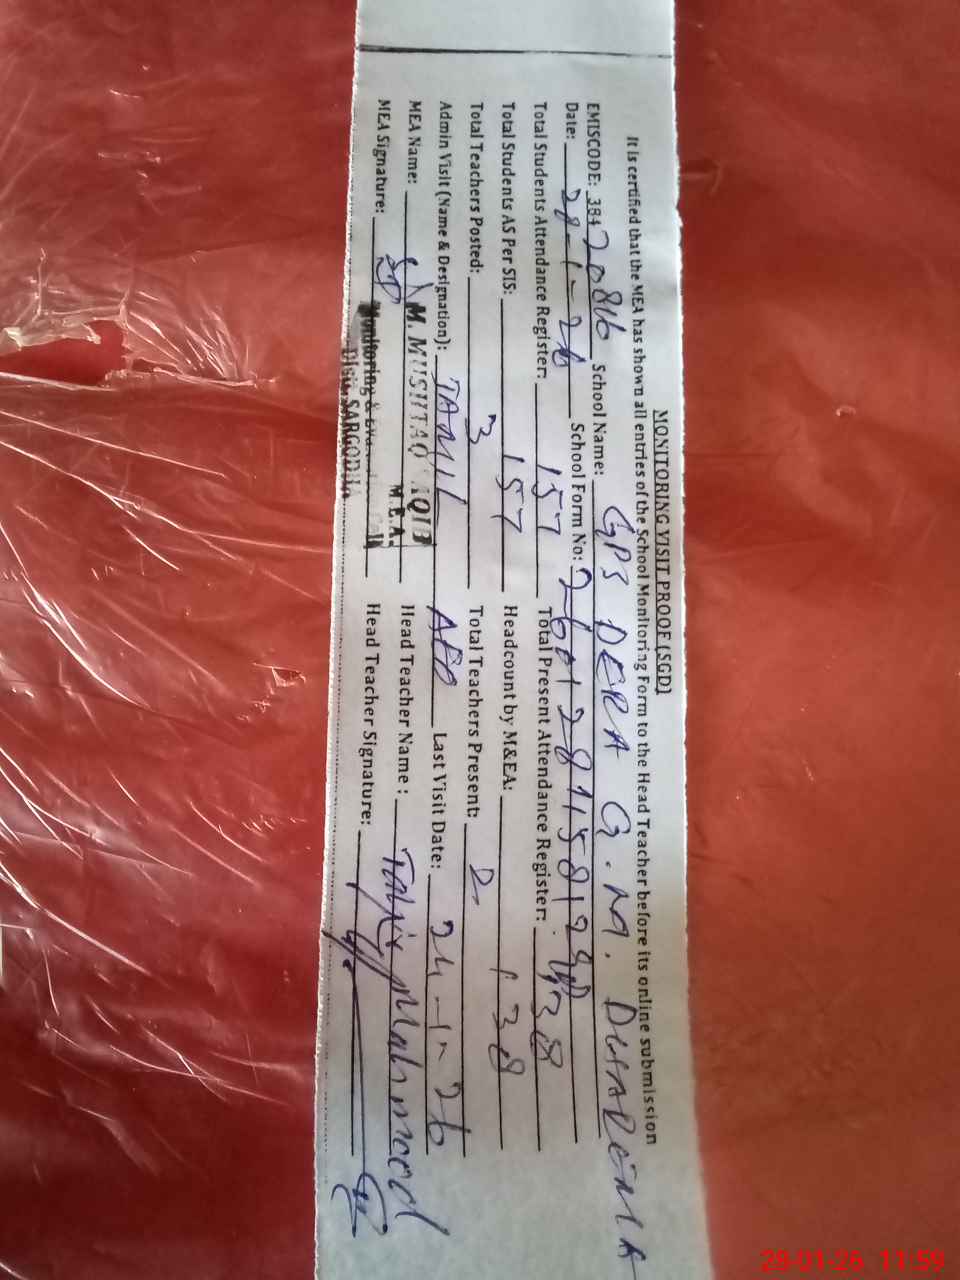 MONITORING VISIT PROOF (SGD)
It is certified that the MEA has shown all entries of the School Monitoring Form to the Head Teacher before its online submission
EMISCODE: 38420816 School Name: GPS DERA G.M. DHADEMA
Date: 28-1-26 School Form No:
Total Students Attendance Register: 157 Total Present Attendance Register: 138
Total Students AS Per SIS: 157 Headcount by M&EA: 138
Total Teachers Posted: 3 Total Teachers Present: 2
Admin Visit (Name & Designation): TAMIL AEO Last Visit Date: 24-1-26
MEA Name: M. MUSHTAQ AQIB Head Teacher Name : Tahir Mahmood
M.E.A.
MEA Signature: Monitoring & Head Teacher Signature:
Distt. SARGODHA
28-01-26 11:59